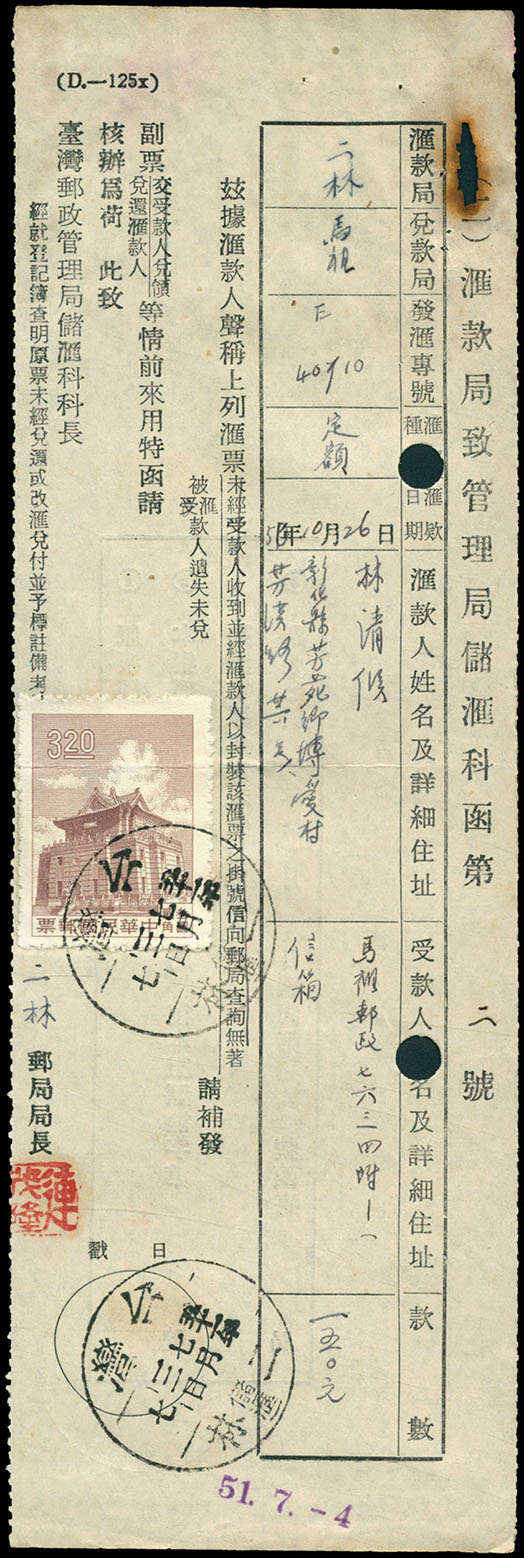 (D.—125x)
(二)滙款局致管理局儲滙科函第 二 號
滙款局
兌款局
發滙專號
滙種
滙款日期
滙款人姓名及詳細住址
受款人 名及詳細住址
款數
二林
馬祖
定額
年10月26日
林清候
彰化縣芳苑鄉博愛村
馬祖郵政七六三四附
信箱
一五〇元
茲據滙款人聲稱上列滙票未經受款人收到並經滙款人以封裝該滙票之掛號信向郵局查詢無著
被滙受款人遺失未兌
請補發
副票交受款人兌領
兌還滙款人
等情前來用特函請
核辦為荷 此致
臺灣郵政管理局儲滙科科長
經就登記簿查明原票未經兌還或改滙兌付並予標註備考
二林 郵局局長
日戳
320
票郵國民華
台灣
二林
儲滙
51. 7. -4